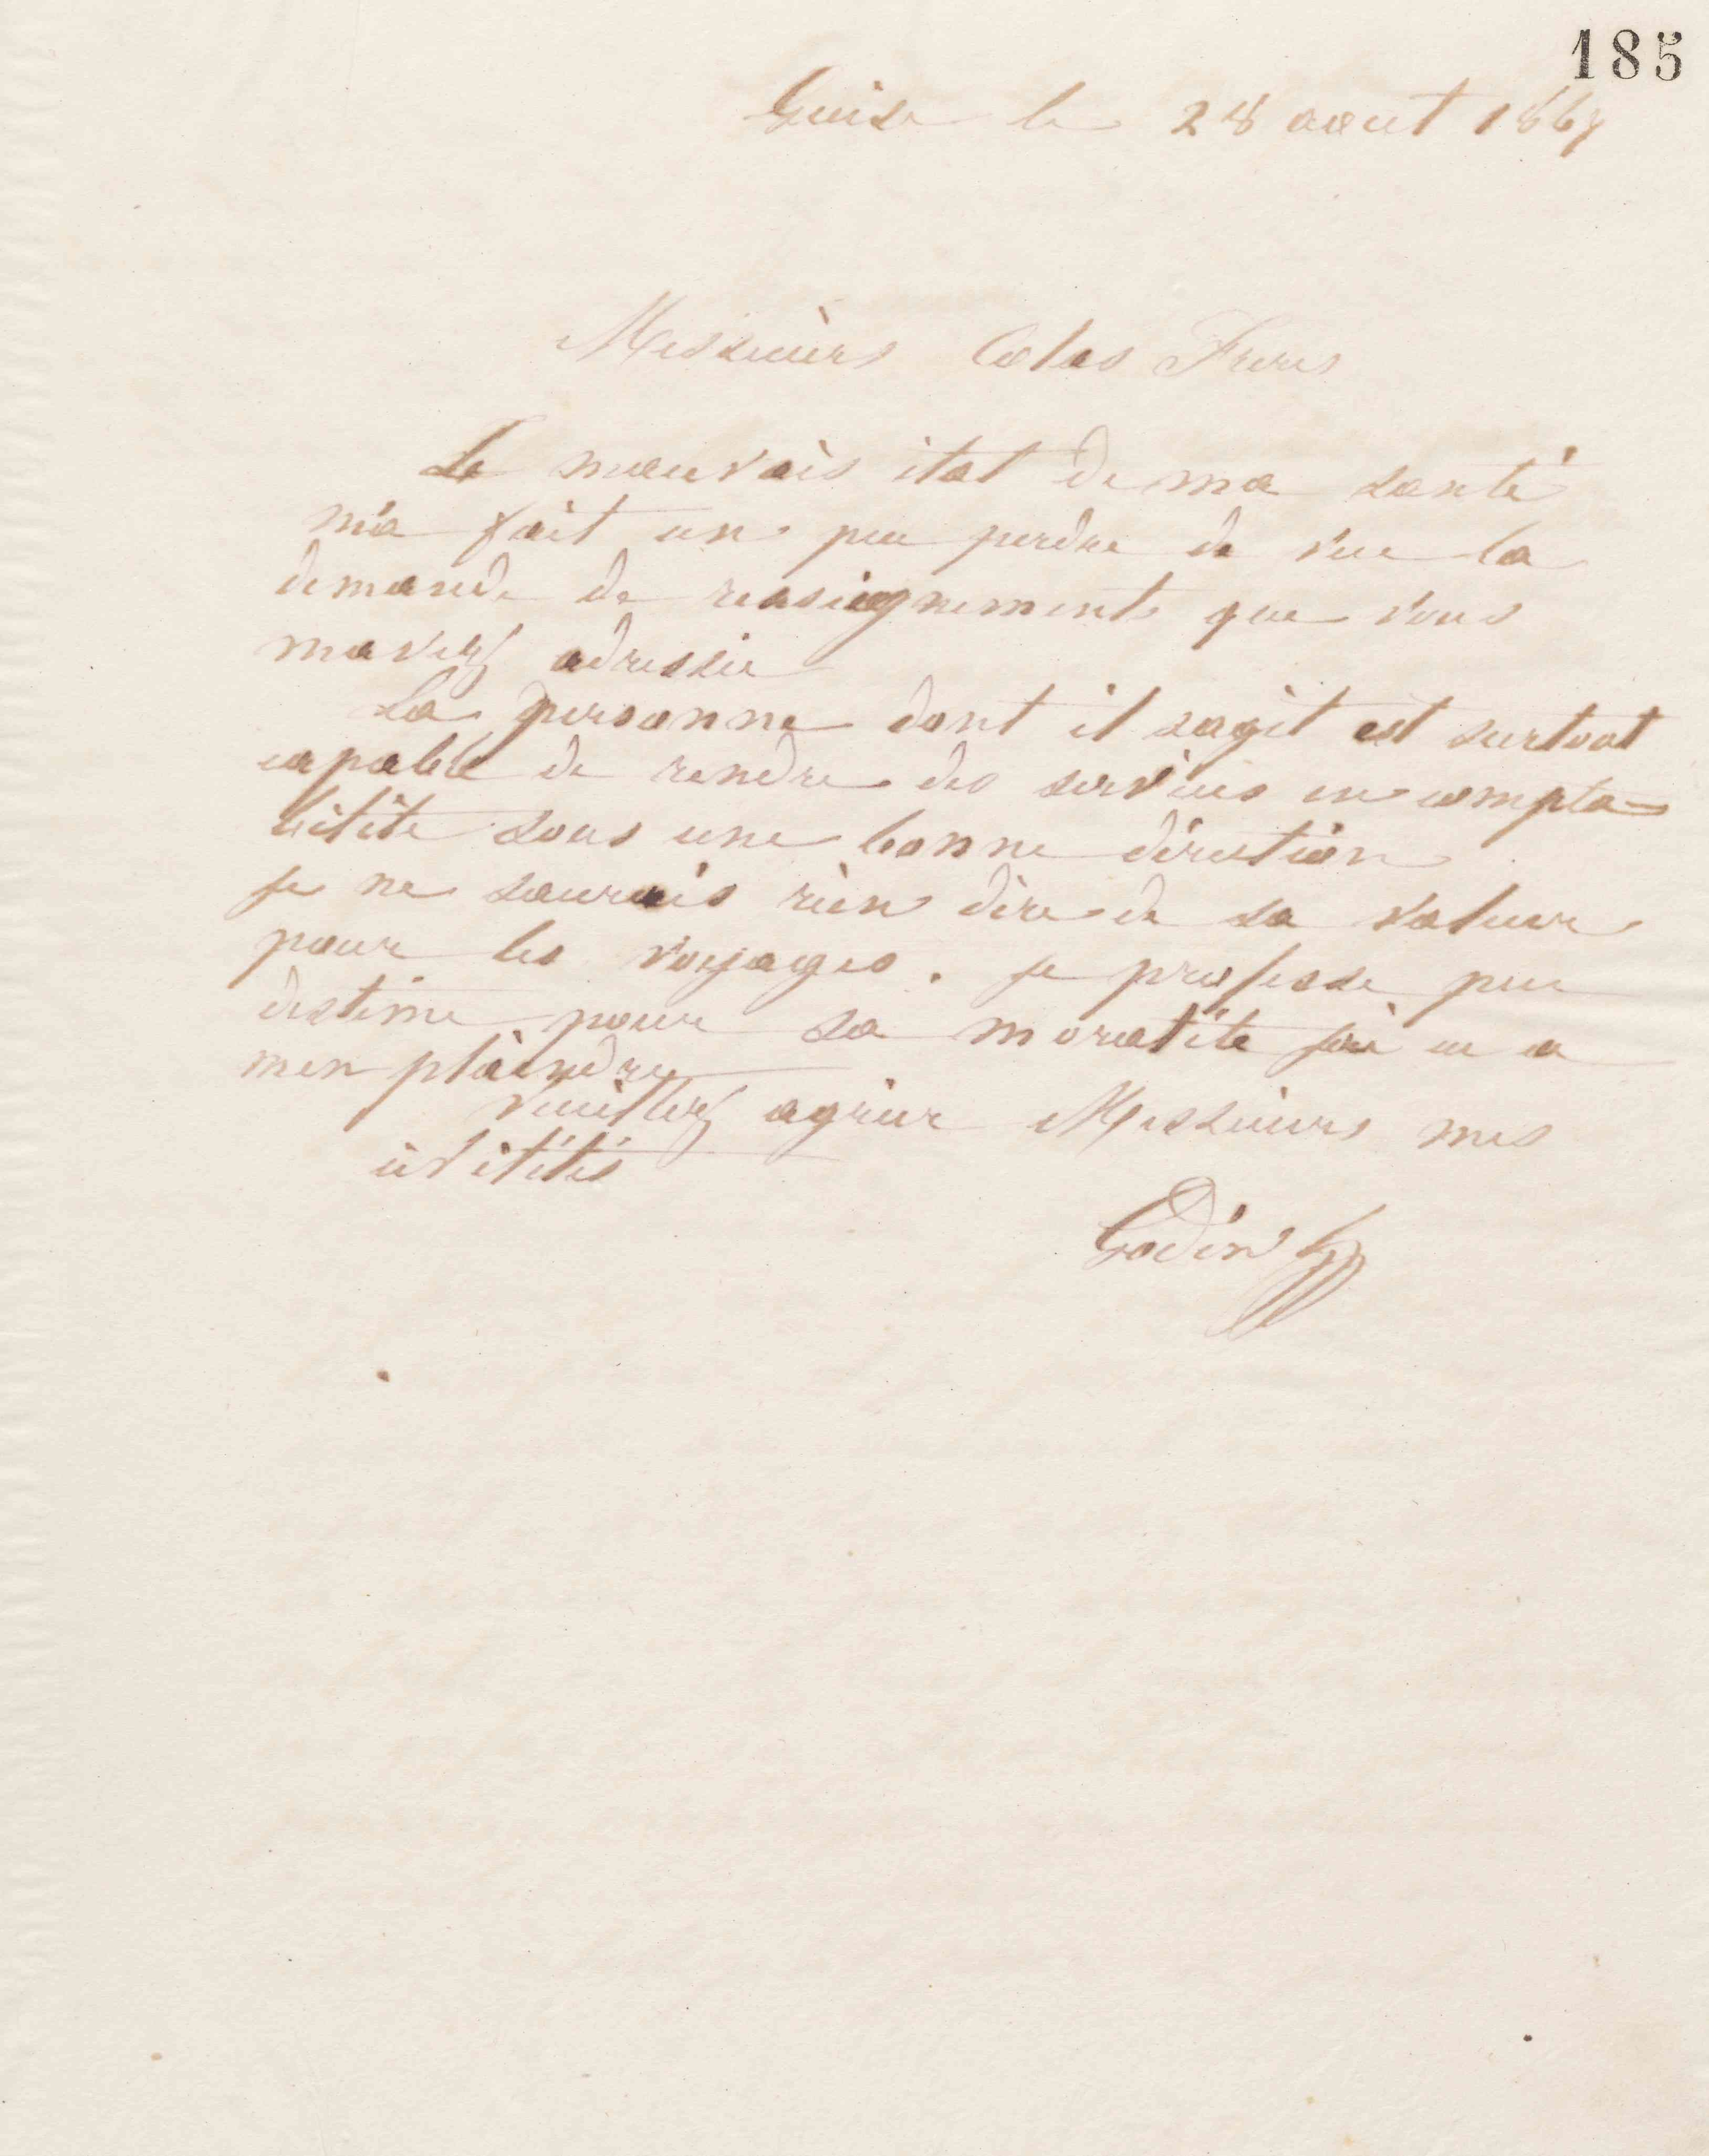 185
Guise le 28 aout 1867
Messieurs Colas Freres
Le mauvais état de ma santé
m'a fait un peu perdre de vue la
demande de renseignements que vous
mavez adressée
La personne dont il sagit est surtout
capable de rendre des services en compta=
bilité sous une bonne direction
je ne saurais rien dire de sa valeur
pour les voyages. je professe peu
destime pour sa moralité j'ai eu a
men plaindre
Veuillez agréer Messieurs mes
civilités
Godin